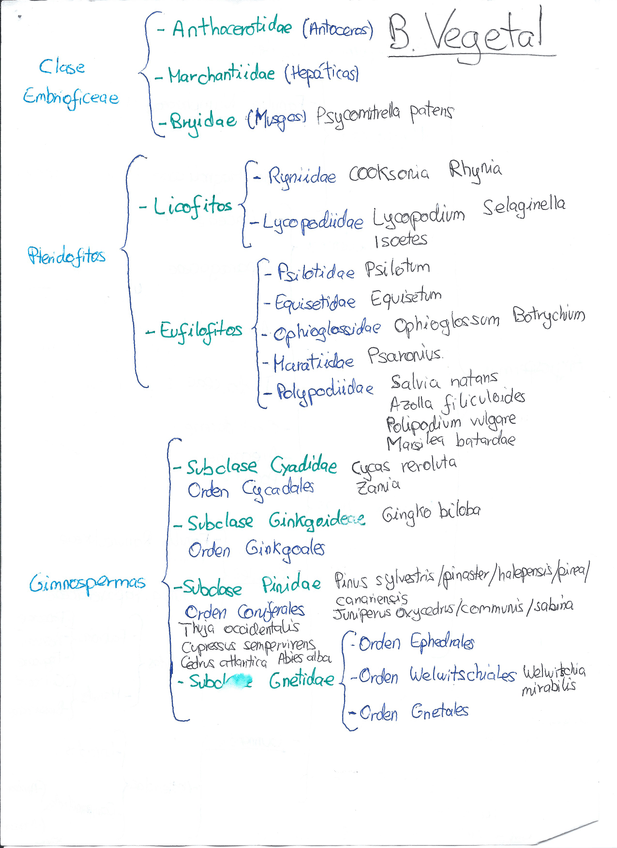 B. Vegetal
Clase
Embrioficeae
- Anthocerotidae (Antoceros)
- Marchantiidae (Hepáticas)
- Bryidae (Musgos) Psycomitrella patens
Pteridofitos
- Licofitos
- Ryniidae Cooksonia Rhynia
- Lycopodiidae Lycopodium Selaginella
Isoetes
- Eufilofitos
- Psilotidae Psilotum
- Equisetidae Equisetum
- Ophioglossidae Ophioglossum Botrychium
- Maratiidae Psaronius.
- Polypodiidae Salvia natans
Azolla filiculoides
Polipodium vulgare
Marsilea batardae
Gimnospermas
- Subclase Cyadidae Cycas revoluta
Orden Cycadales Zamia
- Subclase Ginkgoideae Gingko biloba
Orden Ginkgoales
- Subclase Pinidae Pinus sylvestris/pinaster/halepensis/pinea/
canariensis
Orden Coniferales Juniperus oxycedrus/communis/sabina
Thuja occidentalis
Cupressus sempervirens
Cedrus atlantica Abies alba
- Subclase Gnetidae
- Orden Ephedrales
- Orden Welwitschiales Welwitschia
mirabilis
- Orden Gnetales